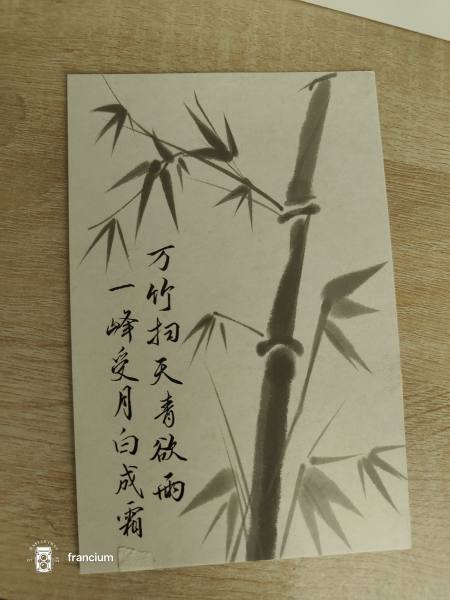 万竹扫天青欲雨
一峰受月白成霜
francium